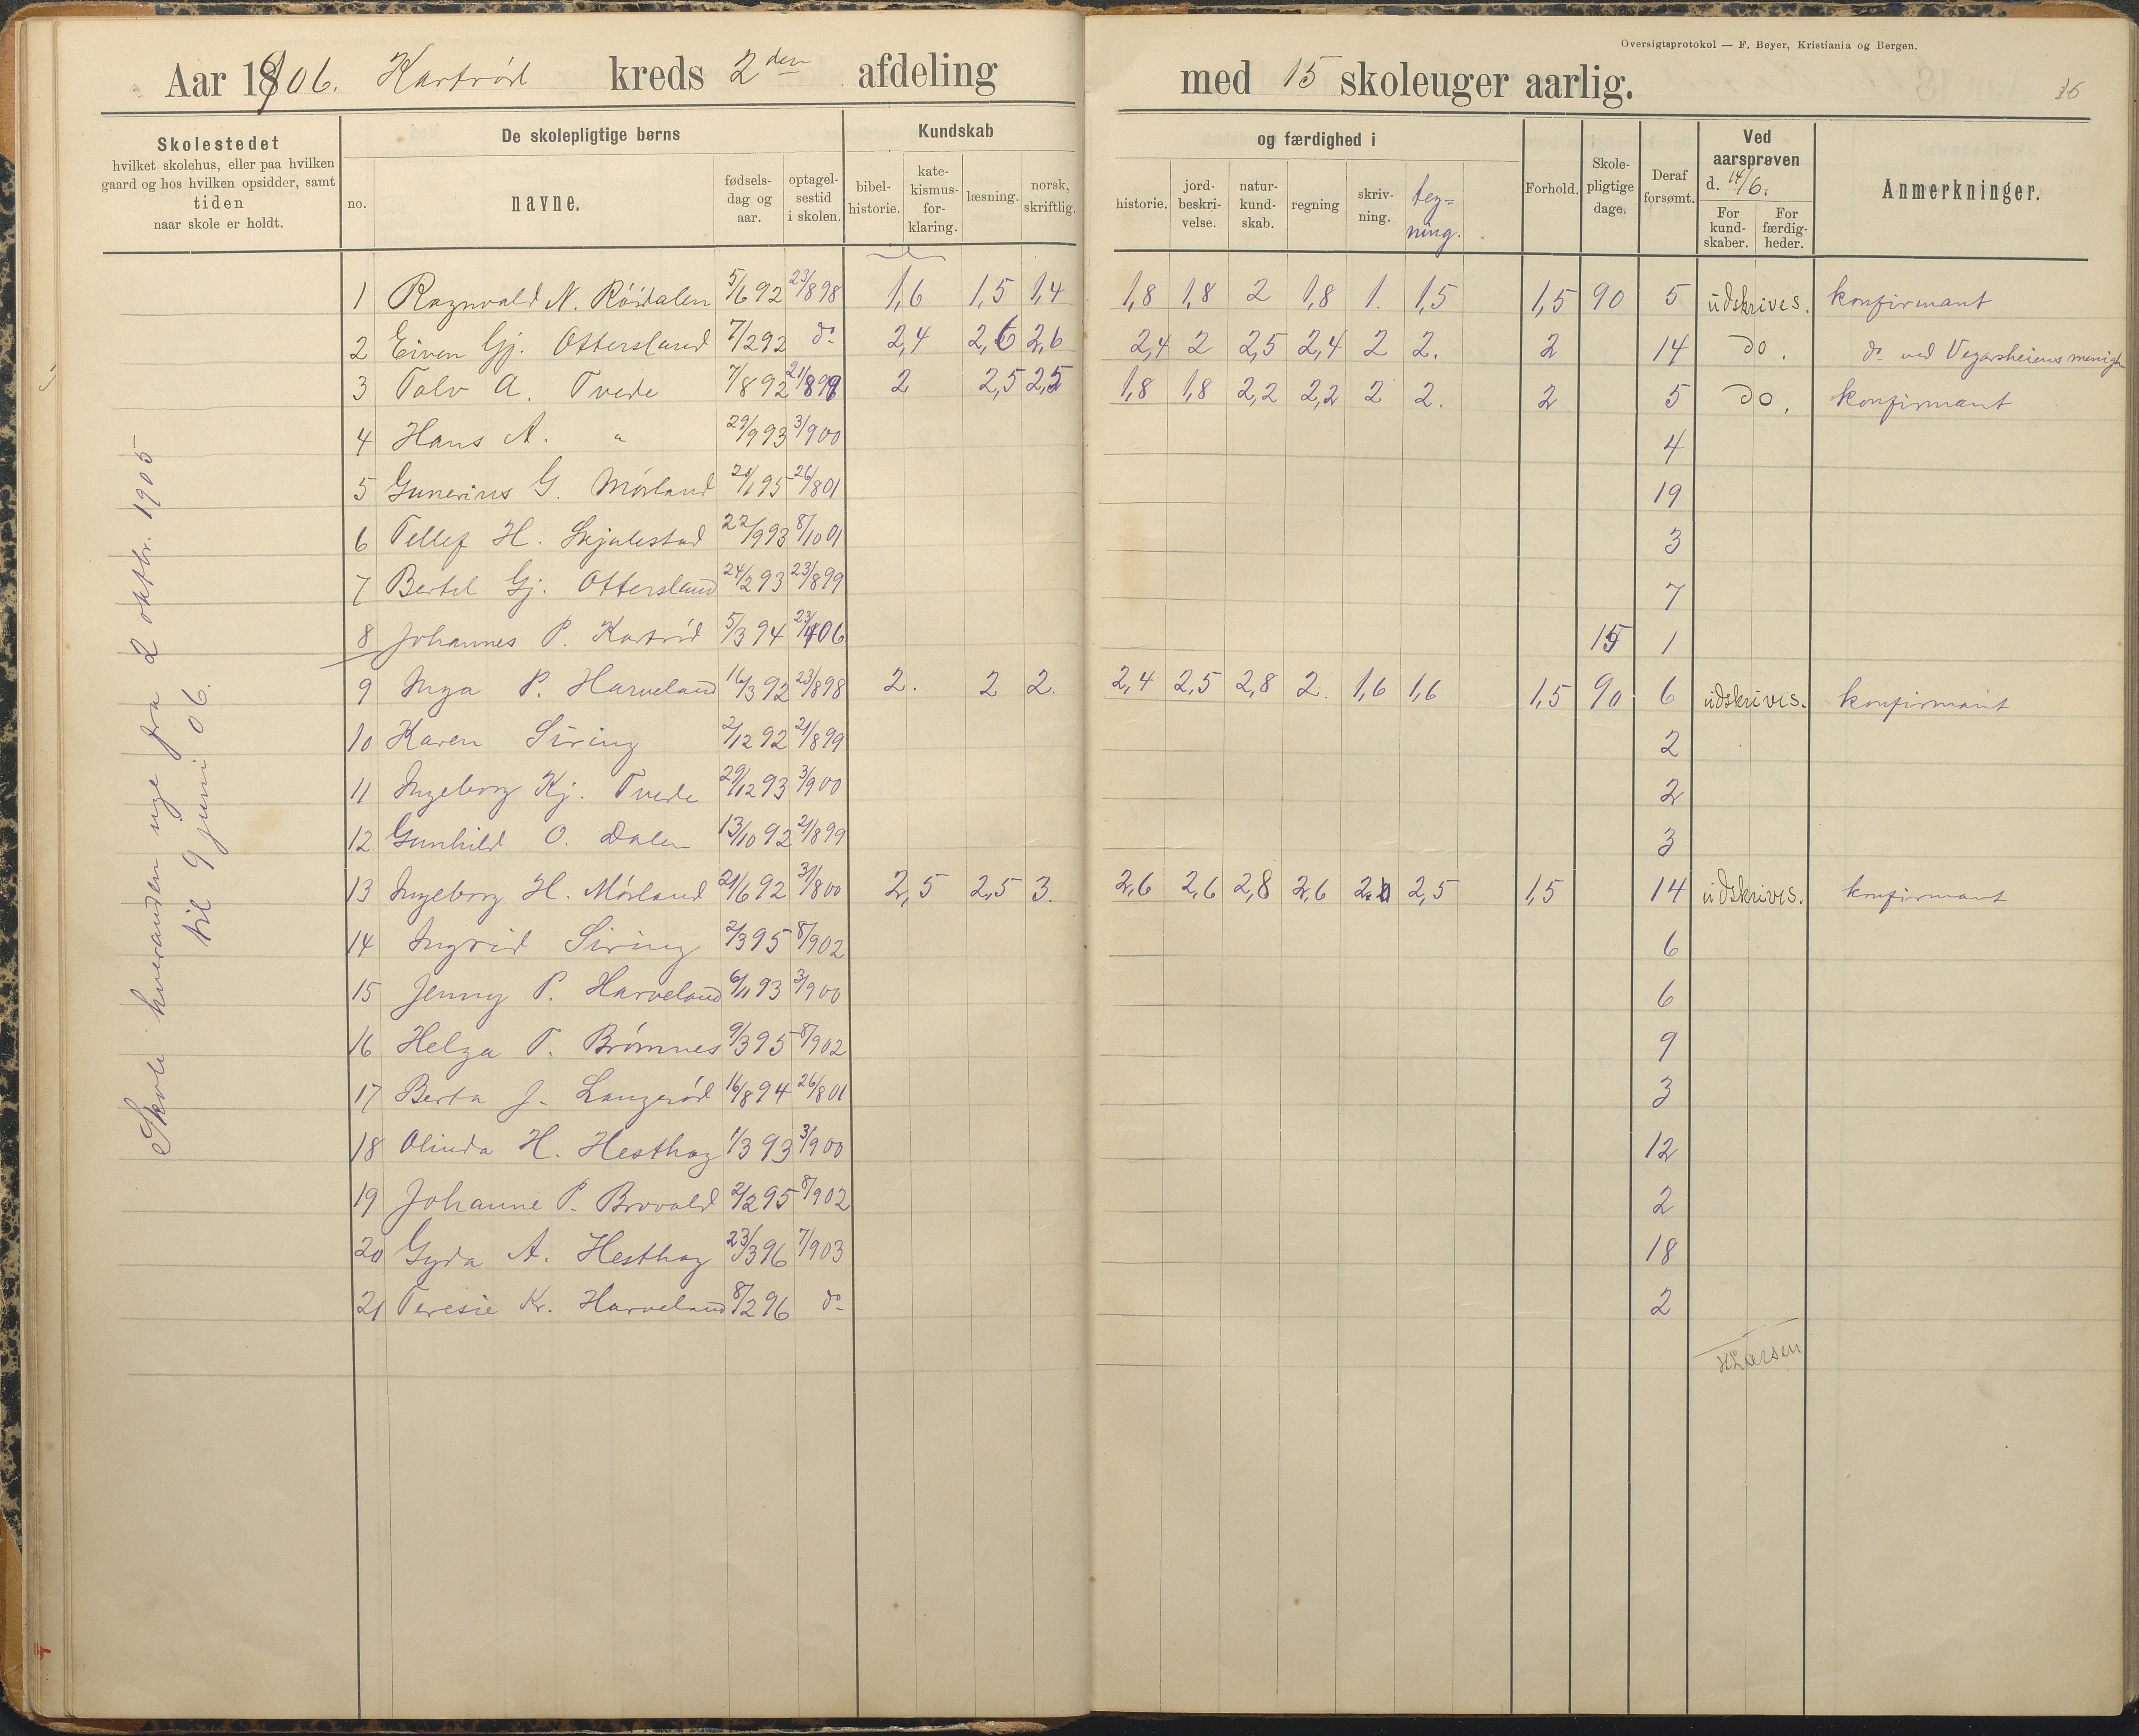 Oversigtsprotokol — F. Beyer, Kristiania og Bergen.
Aar 1906. Kartrød kreds 2den afdeling med 15 skoleuger aarlig. 36
Skolestedet
hvilket skolehus, eller paa hvilken
gaard og hos hvilken opsidder, samt
tiden
naar skole er holdt.
De skolepligtige børns
no.
navne.
fødsels-
dag og
aar.
optagel-
sestid
i skolen.
Kundskab
bibel-
historie.
kate-
kismus-
for-
klaring.
læsning.
norsk,
skriftlig.
og færdighed i
historie.
jord-
beskri-
velse.
natur-
kund-
skab.
regning
skriv-
ning.
teg=
ning.
Forhold.
Skole-
pligtige
dage.
Deraf
forsømt.
Ved
aarsprøven
d. 14/6.
For
kund-
skaber.
For
færdig-
heder.
Anmerkninger.
Skole hveranden uge fra 2 oktbr. 1905
til 9 juni 06.
1 Ragnvald N. Röisdalen 5/6 92 23/8 98 1,6 1,5 1,4 1,8 1,8 2 1,8 1. 1,5 1,5 90 5 udskrives. konfirmant
2 Eiven Gj. Ottersland 7/2 92 do 2,4 2,6 2,6 2,4 2 2,5 2,4 2 2. 2 14 do. do ved Vegarsheiens menigh
3 Talv A. Tvede 7/8 92 21/8 99 2 2,5 2,5 1,8 1,8 2,2 2,2 2 2. 2 5 do. konfirmant
4 Hans A. " 29/9 93 3/9 00 4
5 Gunerius G. Mörland 20/1 95 26/8 01 19
6 Tellef H. Skjulestad 22/9 93 8/10 01 3
7 Bertel Gj. Ottersland 24/2 93 23/8 99 7
8 Johannes P. Kartröd 5/3 94 23/4 06 15 1
9 Inga P. Harveland 16/3 92 23/8 98 2. 2 2. 2,4 2,5 2,8 2. 1,6 1,6 1,5 90 6 udskrives. konfirmant
10 Karen Siring 2/12 92 21/8 99 2
11 Ingeborg Kj. Tvede 29/12 93 3/9 00 2
12 Gunhild O. Dalen 13/10 92 21/8 99 3
13 Ingeborg H. Mörland 21/6 92 31/8 00 2,5 2,5 3. 2,6 2,6 2,8 2,6 2,2 2,5 1,5 14 udskrives. konfirmant
14 Ingrid Siring 2/3 95 8/9 02 6
15 Jenny P. Harveland 6/11 93 3/9 00 6
16 Helga T. Brömnes 9/3 95 8/9 02 9
17 Berta J. Langeröd 16/8 94 26/8 01 3
18 Olinda H. Hesthag 1/3 93 3/9 00 12
19 Johanne P. Brovold 2/2 95 8/9 02 2
20 Gyda A. Hesthag 23/3 96 7/9 03 18
21 Teresie Kr. Harveland 8/2 96 do 2
HLarsen